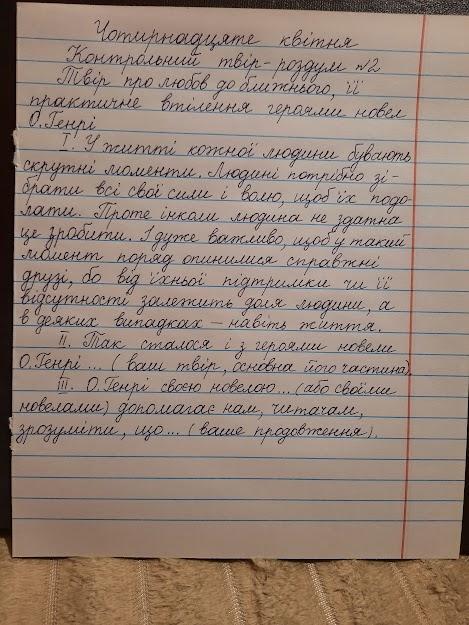 Чотирнадцяте квітня
Контрольний твір-роздум №2
Твір про любов до ближнього, її
практичне втілення героями новел
О.Генрі
I. У житті кожної людини бувають
скрутні моменти. Людині потрібно зі-
брати всі свої сили і волю, щоб їх подо-
лати. Проте інколи людина не здатна
це зробити. І дуже важливо, щоб у такий
момент поряд опинилися справжні
друзі, бо від їхньої підтримки чи її
відсутності залежить доля людини, а
в деяких випадках – навіть життя.
II. Так сталося і з героями новели
О.Генрі ... (ваш твір, основна його частина).
III. О.Генрі своєю новелою ... (або своїми
новелами) допомагає нам, читачам,
зрозуміти, що ... (ваше продовження).